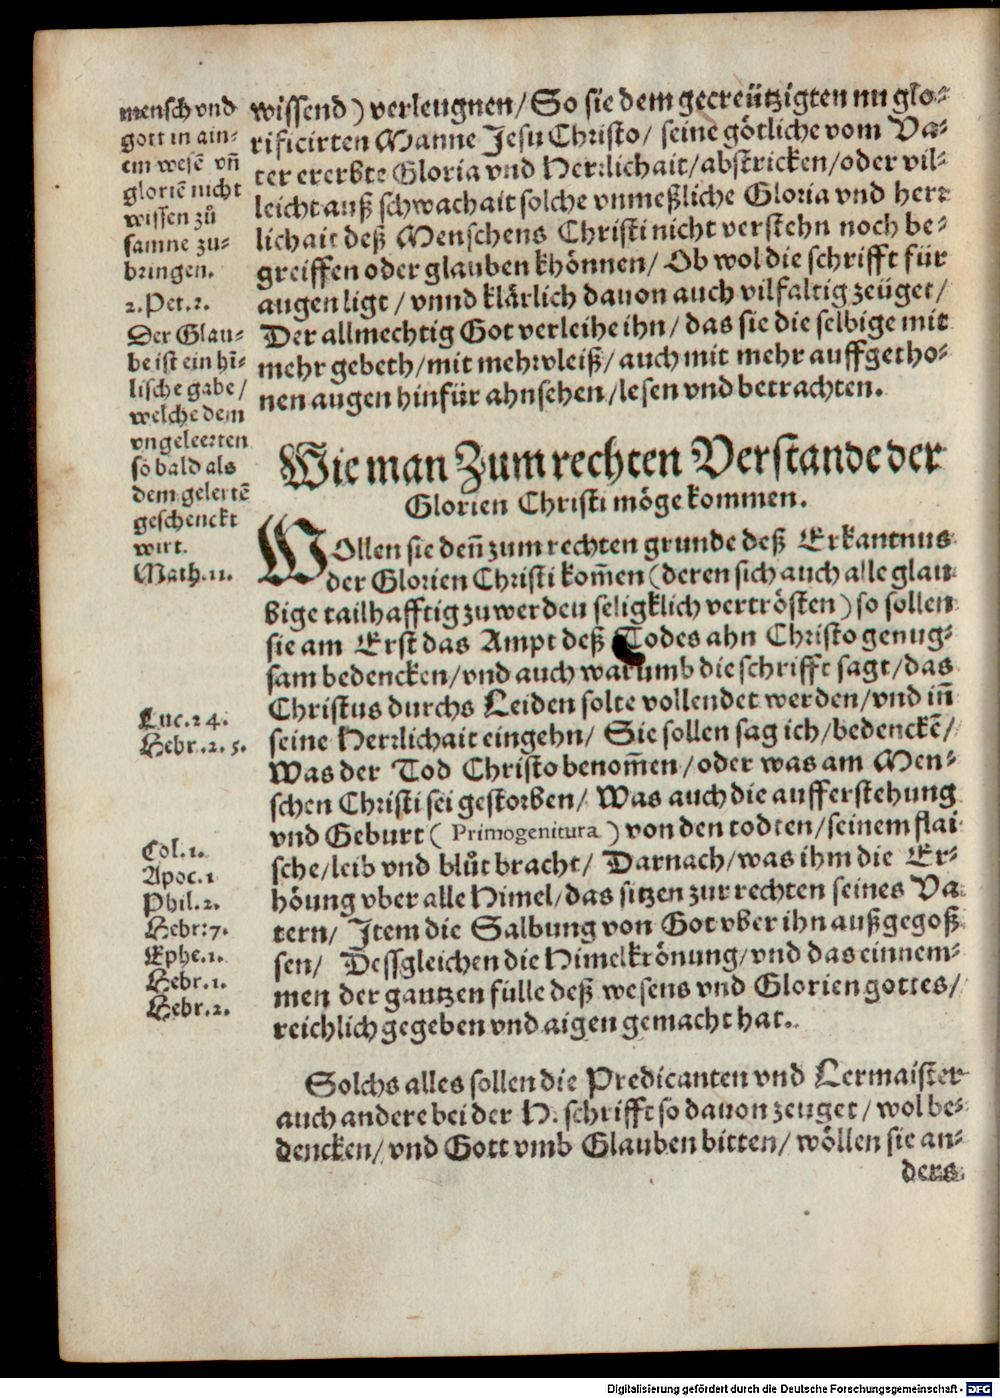 mensch vnd
gott in ain⸗
em wesē vñ
gloriē nicht
wissen zů
samne zu⸗
bringen.
2. Pet. 1.
Der Glau⸗
be ist ein hī⸗
lische gabe /
welche dem
vngeleerten
so bald als
dem gelertē
geschenckt
wirt.
Math. 11.
Luc. 24.
Hebr. 2. 5.
Col. 1.
Apoc. 1
Phil. 2.
Hebr: 7.
Ephe. 1.
Hebr. 1.
Hebr. 2.
wissend) verleugnen / So sie dem gecreützigten nu glo⸗
rificirten Manne Jesu Christo / seine götliche vom Va⸗
ter ererbte Gloria vnd Herrlichait / abstricken / oder vil⸗
leicht auß schwachait solche vnmeßliche Gloria vnd herr
lichait deß Menschens Christi nicht verstehn noch be⸗
greiffen oder glauben khönnen / Ob wol die schrifft für
augen ligt / vnnd klärlich dauon auch vilfaltig zeüget /
Der allmechtig Got verleihe ihn / das sie die selbige mit
mehr gebeth / mit mehr vleiß / auch mit mehr auffgetho⸗
nen augen hinfür ahnsehen / lesen vnd betrachten.
Wie man Zum rechten Verstande der
Glorien Christi möge kommen.
WOllen sie deñ zum rechten grunde deß Erkantnus
der Glorien Christi kom̄en (deren sich auch alle glau
bige tailhafftig zu werden seligklich vertrösten) so sollen
sie am Erst das Ampt deß Todes ahn Christo genug⸗
sam bedencken / vnd auch warumb die schrifft sagt / das
Christus durchs Leiden solte vollendet werden / vnd iñ
seine Herrlichait eingehn / Sie sollen sag ich / bedenckē /
Was der Tod Christo benom̄en / oder was am Men⸗
schen Christi sei gestorben / Was auch die aufferstehung
vnd Geburt ( Primogenitura ) von den todten / seinem flai
sche / leib vnd blůt bracht / Darnach / was ihm die Er⸗
höung vber alle Himel / das sitzen zur rechten seines Va
tern / Item die Salbung von Got vber ihn außgegoß
sen / Dessgleichen die Himelkrönung / vnd das einnem⸗
men der gantzen fülle deß wesens vnd Glorien gottes /
reichlich gegeben vnd aigen gemacht hat.
Solchs alles sollen die Predicanten vnd Lermaister
auch andere bei der H. schrifft so dauon zeuget / wol be⸗
dencken / vnd Gott vmb Glauben bitten / wöllen sie an⸗
ders
Digitalisierung gefördert durch die Deutsche Forschungsgemeinschaft - DFG